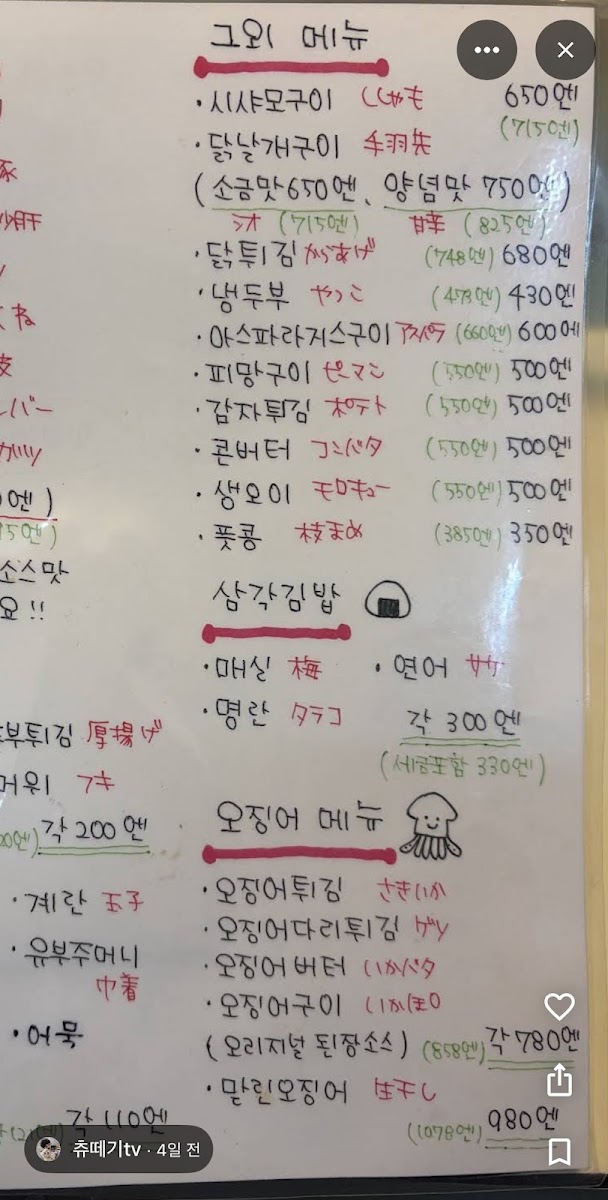 그외 메뉴
·시샤모구이 ししゃも 650엔
(715엔)
·닭날개구이 手羽先
(소금맛 650엔、양념맛 750엔)
シオ (715엔) 甘辛 (825엔)
·닭튀김 からあげ (748엔) 680엔
·냉두부 やっこ (473엔) 430엔
·아스파라거스구이 アスパラ (660엔) 600
·피망구이 ピーマン (550엔) 500엔
·감자튀김 ポテト (550엔) 500엔
·콘버터 コーンバタ (550엔) 500엔
·생오이 モロキュー (550엔) 500엔
·풋콩 枝まめ (385엔) 350엔
삼각김밥
·매실 梅 ·연어 サケ
·명란 タラコ
각 300엔
(세금포함 330엔)
오징어 메뉴
·오징어튀김 さきいか
·오징어다리튀김 ゲソ
·오징어버터 いかバタ
·오징어구이 いか
(오리지널 된장소스) (858엔) 각 780엔
·말린오징어 生干し
(1078엔) 980엔
엔)
소스맛
요!!
튀김 厚揚げ
머위 フキ
각 200엔
·계란 玉子
·유부주머니
巾着
·어묵
각 110엔
츄떼기tv · 4일 전